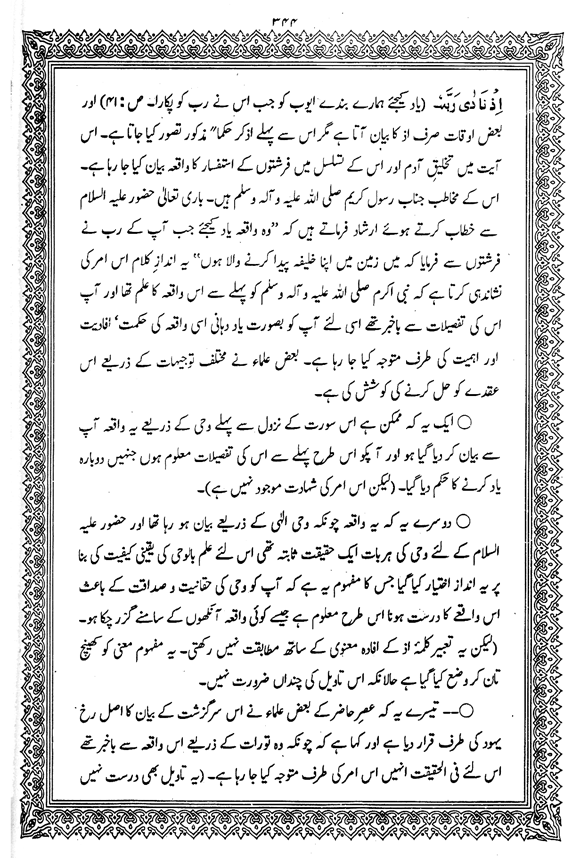 ۳۴۴
اِذْ نَادٰى رَبَّهٗ۔ (یاد کیجئے ہمارے بندے ایوب کو جب اس نے رب کو پکارا۔ ص : ۴۱) اور
بعض اوقات صرف اذ کا بیان آتا ہے مگر اس سے پہلے اذکر حکماً مذکور تصور کیا جاتا ہے۔ اس
آیت میں تخلیق آدم اور اس کے تسلسل میں فرشتوں کے استفسار کا واقعہ بیان کیا جا رہا ہے۔
اس کے مخاطب جناب رسول کریم صلی اللہ علیہ و آلہ وسلم ہیں۔ باری تعالیٰ حضور علیہ السلام
سے خطاب کرتے ہوئے ارشاد فرماتے ہیں کہ ”وہ واقعہ یاد کیجئے جب آپ کے رب نے
فرشتوں سے فرمایا کہ میں زمین میں اپنا خلیفہ پیدا کرنے والا ہوں“ یہ انداز کلام اس امر کی
نشاندہی کرتا ہے کہ نبی اکرم صلی اللہ علیہ و آلہ وسلم کو پہلے سے اس واقعہ کا علم تھا اور آپ
اس کی تفصیلات سے باخبر تھے اسی لئے آپ کو بصورت یاد دہانی اسی واقعہ کی حکمت‘ افادیت
اور اہمیت کی طرف متوجہ کیا جا رہا ہے۔ بعض علماء نے مختلف توجیہات کے ذریعے اس
عقدے کو حل کرنے کی کوشش کی ہے۔
○ ایک یہ کہ ممکن ہے اس سورت کے نزول سے پہلے وحی کے ذریعے یہ واقعہ آپ
سے بیان کر دیا گیا ہو اور آپکو اس طرح پہلے سے اس کی تفصیلات معلوم ہوں جنہیں دوبارہ
یاد کرنے کا حکم دیا گیا۔ (لیکن اس امر کی شہادت موجود نہیں ہے)۔
○ دوسرے یہ کہ یہ واقعہ چونکہ وحی الٰہی کے ذریعے بیان ہو رہا تھا اور حضور علیہ
السلام کے لئے وحی کی ہر بات ایک حقیقت ثابتہ تھی اس لئے علم بالوحی کی یقینی کیفیت کی بنا
پر یہ انداز اختیار کیا گیا جس کا مفہوم یہ ہے کہ آپ کو وحی کی حقانیت و صداقت کے باعث
اس واقعے کا درست ہونا اس طرح معلوم ہے جیسے کوئی واقعہ آنکھوں کے سامنے گزر چکا ہو۔
(لیکن یہ تعبیر کلمۂ اذ کے افادہ معنوی کے ساتھ مطابقت نہیں رکھتی۔ یہ مفہوم معنی کو کھینچ
تان کر وضع کیا گیا ہے حالانکہ اس تاویل کی چنداں ضرورت نہیں۔
○-- تیسرے یہ کہ عصر حاضر کے بعض علماء نے اس سرگزشت کے بیان کا اصل رخ
یہود کی طرف قرار دیا ہے اور کہا ہے کہ چونکہ وہ تورات کے ذریعے اس واقعہ سے باخبر تھے
اس لئے فی الحقیقت انہیں اس امر کی طرف متوجہ کیا جا رہا ہے۔ (یہ تاویل بھی درست نہیں